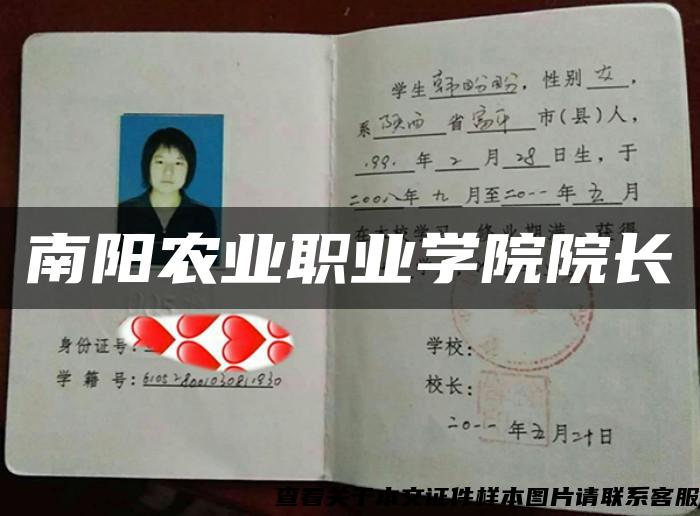 学生韩盼盼,性别女,
系陕西省富平市(县)人,
1991年2月28日生,于
二00八年九月至二0一一年五月
南阳农业职业学院院长
身份证号:
学籍号:6105280010308111930
学校:
校长:
二0一一年五月二十日
查看关于本文证件样本图片请联系客服